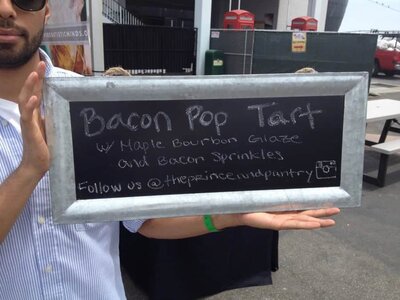 Bacon Pop Tart
w/ Maple Bourbon Glaze
and Bacon Sprinkles
Follow us @theprinceandpantry